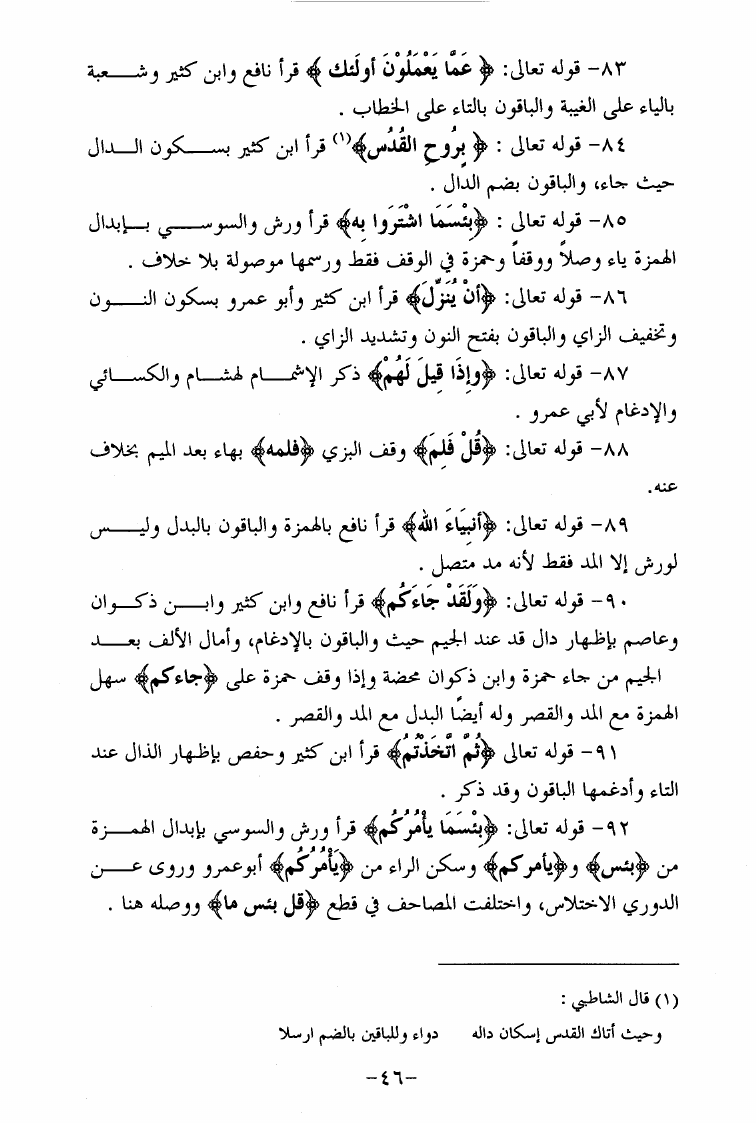 ٨٣- قوله تعالى: ﴿ عَمَّا يَعْمَلُونَ أولَئك ﴾ قرأ نافع وابن كثير وشعبة
بالياء على الغيبة والباقون بالتاء على الخطاب .
٨٤- قوله تعالى : ﴿ بِرُوحِ القُدُس﴾(١) قرأ ابن كثير بسكون الدال
حيث جاء، والباقون بضم الدال .
٨٥- قوله تعالى : ﴿بِئْسَمَا اشْتَرَوا به﴾ قرأ ورش والسوسي بإبدال
الهمزة ياء وصلاً ووقفاً وحمزة في الوقف فقط ورسمها موصولة بلا خلاف .
٨٦- قوله تعالى: ﴿أنْ يُنَزِّلَ﴾ قرأ ابن كثير وأبو عمرو بسكون النون
وتخفيف الزاي والباقون بفتح النون وتشديد الزاي .
٨٧- قوله تعالى: ﴿وإِذَا قِيلَ لَهُمْ﴾ ذكر الإشمام لهشام والكسائي
والإدغام لأبي عمرو .
٨٨- قوله تعالى: ﴿قُلْ فَلِمَ﴾ وقف البزي ﴿فلمه﴾ بهاء بعد الميم بخلاف
عنه.
٨٩- قوله تعالى: ﴿أنبِيَاءَ الله﴾ قرأ نافع بالهمزة والباقون بالبدل وليس
لورش إلا المد فقط لأنه مد متصل .
٩٠- قوله تعالى: ﴿وَلَقَدْ جَاءَكُم﴾ قرأ نافع وابن كثير وابن ذكوان
وعاصم بإظهار دال قد عند الجيم حيث والباقون بالإدغام، وأمال الألف بعد
الجيم من جاء حمزة وابن ذكوان محضة وإذا وقف حمزة على ﴿جاءكم﴾ سهل
الهمزة مع المد والقصر وله أيضًا البدل مع المد والقصر .
٩١- قوله تعالى ﴿ثُمَّ اتَّخَذْتُمُ﴾ قرأ ابن كثير وحفص بإظهار الذال عند
التاء وأدغمها الباقون وقد ذكر .
٩٢- قوله تعالى: ﴿بِئْسَمَا يأْمُرُكُم﴾ قرأ ورش والسوسي بإبدال الهمزة
من ﴿بئس﴾ و﴿يأمركم﴾ وسكن الراء من ﴿يَأْمُرُكُم﴾ أبوعمرو وروى عن
الدوري الاختلاس، واختلفت المصاحف في قطع ﴿قل بئس ما﴾ ووصله هنا .
(١) قال الشاطبي :
وحيث أتاك القدس إسكان داله دواء وللباقين بالضم ارسلا
-٤٦-